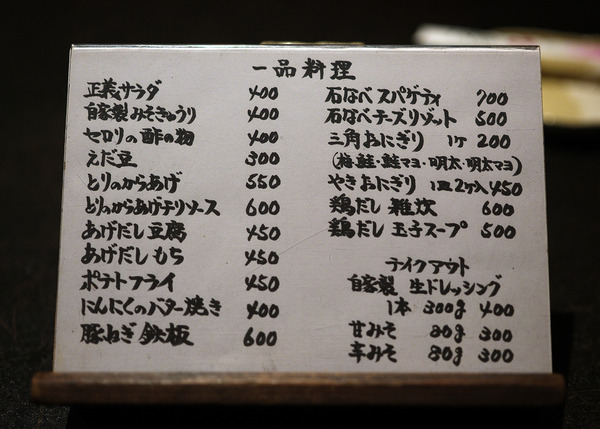 一品料理
正義サラダ 400
自家製みそきゅうり 400
セロリの酢の物 400
えだ豆 300
とりのからあげ 550
とりのからあげチリソース 600
あげだし豆腐 450
あげだしもち 450
ポテトフライ 450
にんにくのバター焼き 400
豚ねぎ鉄板 600
石なべスパゲティ 700
石なべチーズリゾット 500
三角おにぎり 1ケ 200
(梅・鮭・鮭マヨ・明太・明太マヨ)
やきおにぎり 1皿2ケ入 450
鶏だし 雑炊 600
鶏だし 玉子スープ 500
テイクアウト
自家製 生ドレッシング
1本 300g 400
甘みそ 80g 300
辛みそ 80g 300